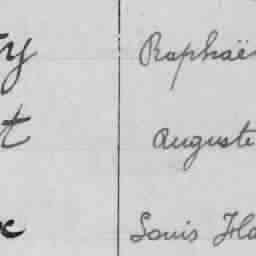 ty Raphaë
t Auguste
x Louis Ha